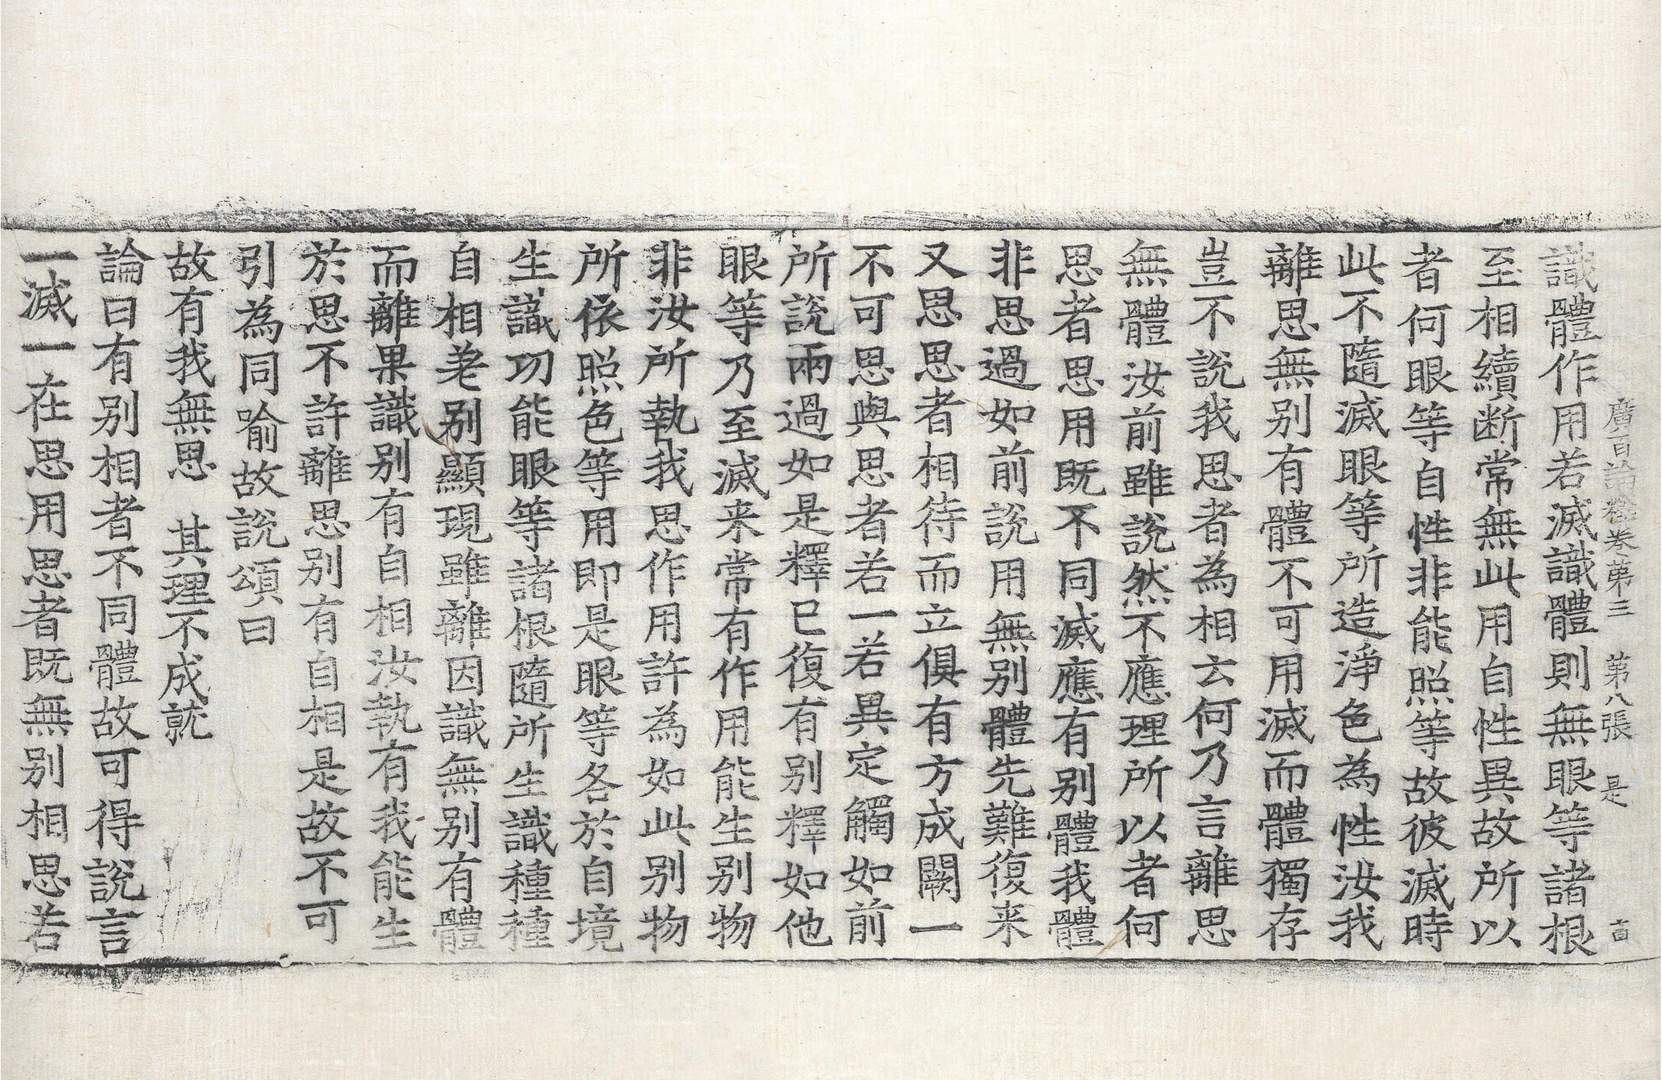 廣百論釋卷第三 第八張 是
識體作用若滅識體則無眼等諸根
至相續断常無此用自性異故所以
者何眼等自性非能照等故彼滅時
此不隨滅眼等所造淨色為性汝我
離思無别有體不可用滅而體獨存
豈不說我思者為相云何乃言離思
無體汝前雖說然不應理所以者何
思者思用既不同滅應有别體我體
非思過如前說用無别體先難復来
又思思者相待而立俱有方成闕一
不可思與思者若一若異定觸如前
所說兩過如是釋已復有别釋如他
眼等乃至滅来常有作用能生别物
非汝所執我思作用許為如此别物
所依照色等用即是眼等各於自境
生識功能眼等諸根隨所生識種種
自相差别顯現雖離因識無别有體
而離果識别有自相汝執有我能生
於思不許離思别有自相是故不可
引為同喻故說頌曰
故有我無思 其理不成就
論曰有别相者不同體故可得說言
一滅一在思用思者既無别相思若